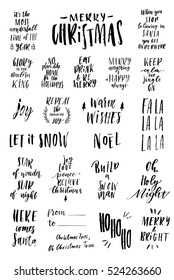 it's the
most
wonderful
time of the
year
MERRY
CHRISTMAS
When you
stop
believing
in
santa
GLORY
to the
newborn
KING
no
place like
home
for the
holidays
EAT
DRINK
& BE
MERRY
MERRY
everything
HAPPY
always
KEEP
calm
and
jingle
on
joy
REPEAT
the
sounding
joy
WARM
WISHES
FA LA
LA LA
LA LA
LA LA
let it snow
NOEL
STAR
of wonder
STAR
of night
love
joy
peace
believe
Christmas
Build
a
SNOW
MAN
Oh,
Holy
Night
HERE
comes
Santa
From
to
Christmas Tree,
Oh Christmas Tree.
HO
HO
HO
MERRY
&
BRIGHT
shutterstock
524263660